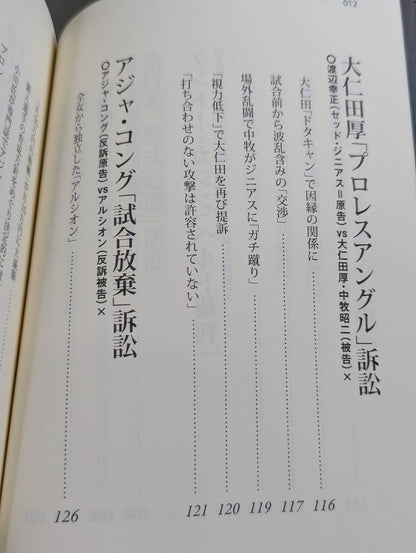 012
大仁田厚「プロレスアングル」訴訟
○渡辺幸正（セッド・ジニアス＝原告）vs大仁田厚・中牧昭二（被告）×
大仁田「ドタキャン」で因縁の関係に……116
試合前から波乱含みの「交渉」……117
場外乱闘で中牧がジニアスに「ガチ蹴り」……119
「視力低下」で大仁田を再び提訴……120
「打ち合わせのない攻撃は許容されていない」……121
アジャ・コング「試合放棄」訴訟
○アジャ・コング（反訴原告）vsアルシオン（反訴被告）×
全女から独立した「アルシオン」……126